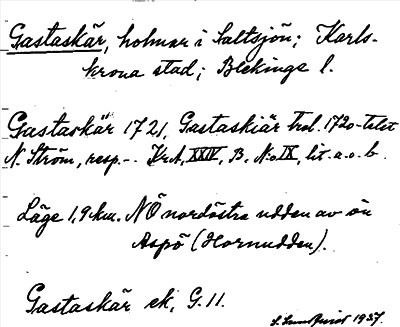 Gastaskär, holmar i Saltsjön; Karls-
krona stad; Blekinge l.
Gastaskär 1721, Gastaskiär trol. 1720-talet
N. Ström, resp.-. KrA, XXIV, B. N:o IX, lit. a. o. b.
Läge 1,9 km. NÖ nordöstra udden av ön
Aspö (Hornudden).
Gastaskär ek. G. 11.
1937.